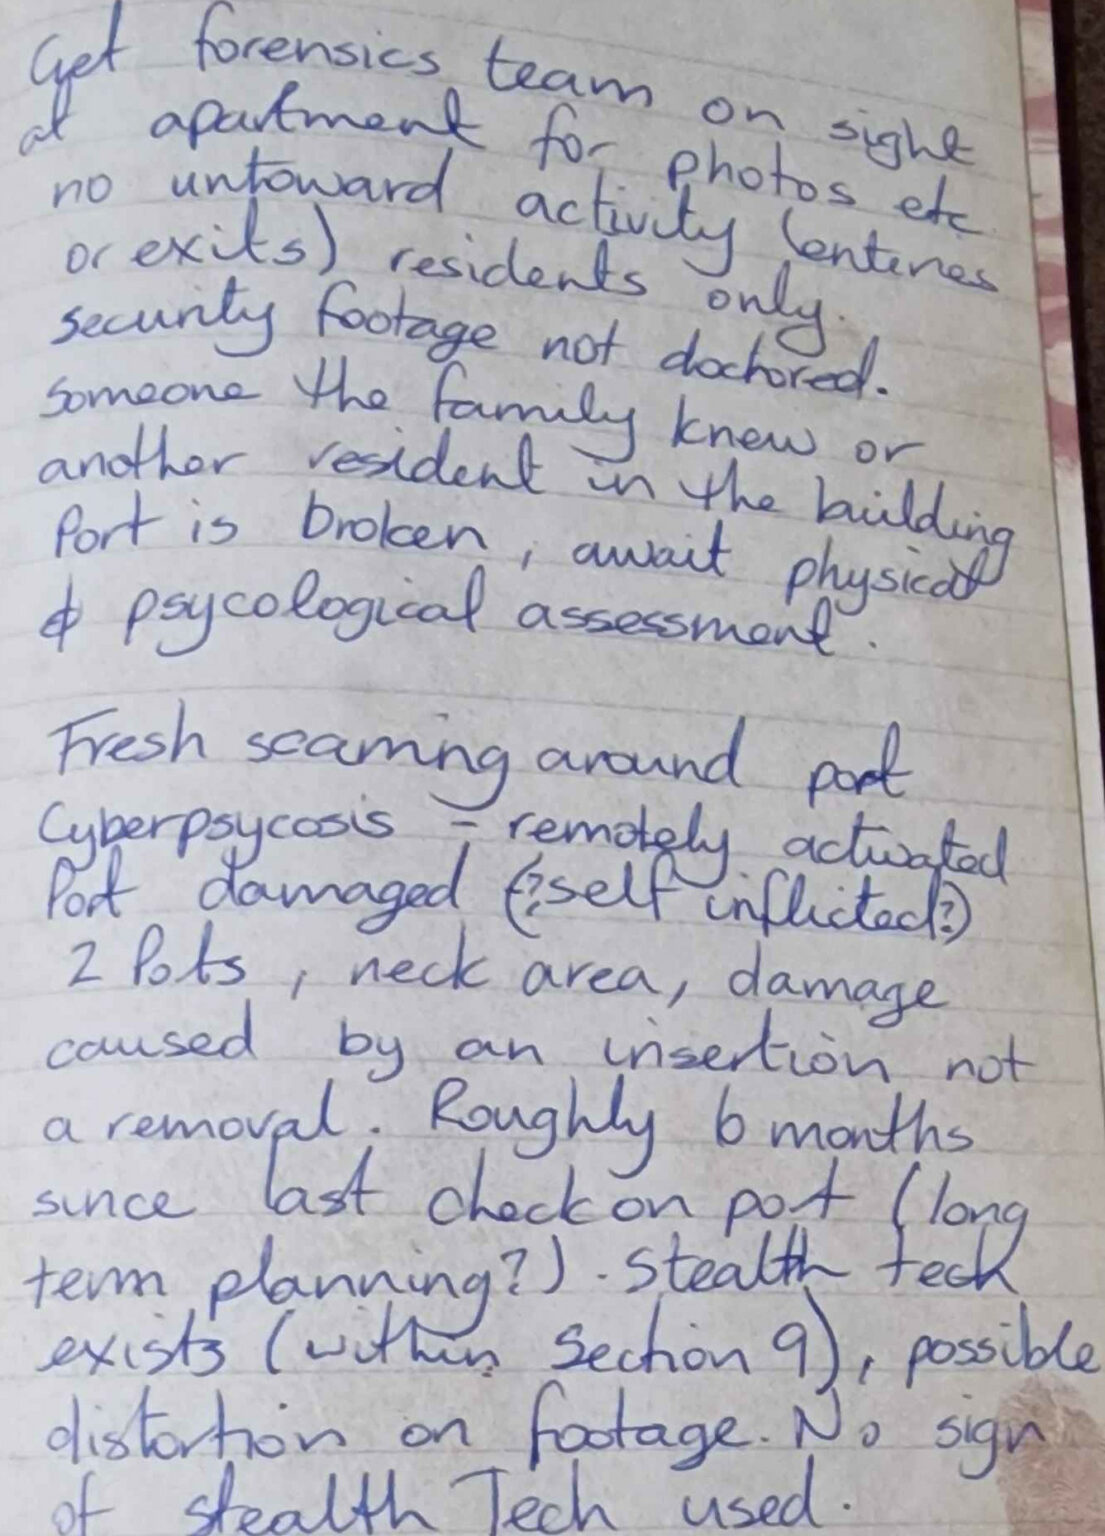 Get forensics team on sight
at apartment for photos etc
no untoward activity (enteries
or exits) residents only.
security footage not doctored.
Someone the family knew or
another resident in the building
Port is broken, await physical
& psycological assessment.
Fresh scarring around port
Cyberpsycosis - remotely activated
Port damaged (?self inflicted?)
2 Pots, neck area, damage
caused by an insertion not
a removal. Roughly 6 months
since last check on port (long
term planning?). Stealth teck
exists (within Section 9), possible
distortion on footage. No sign
of stealth Tech used.